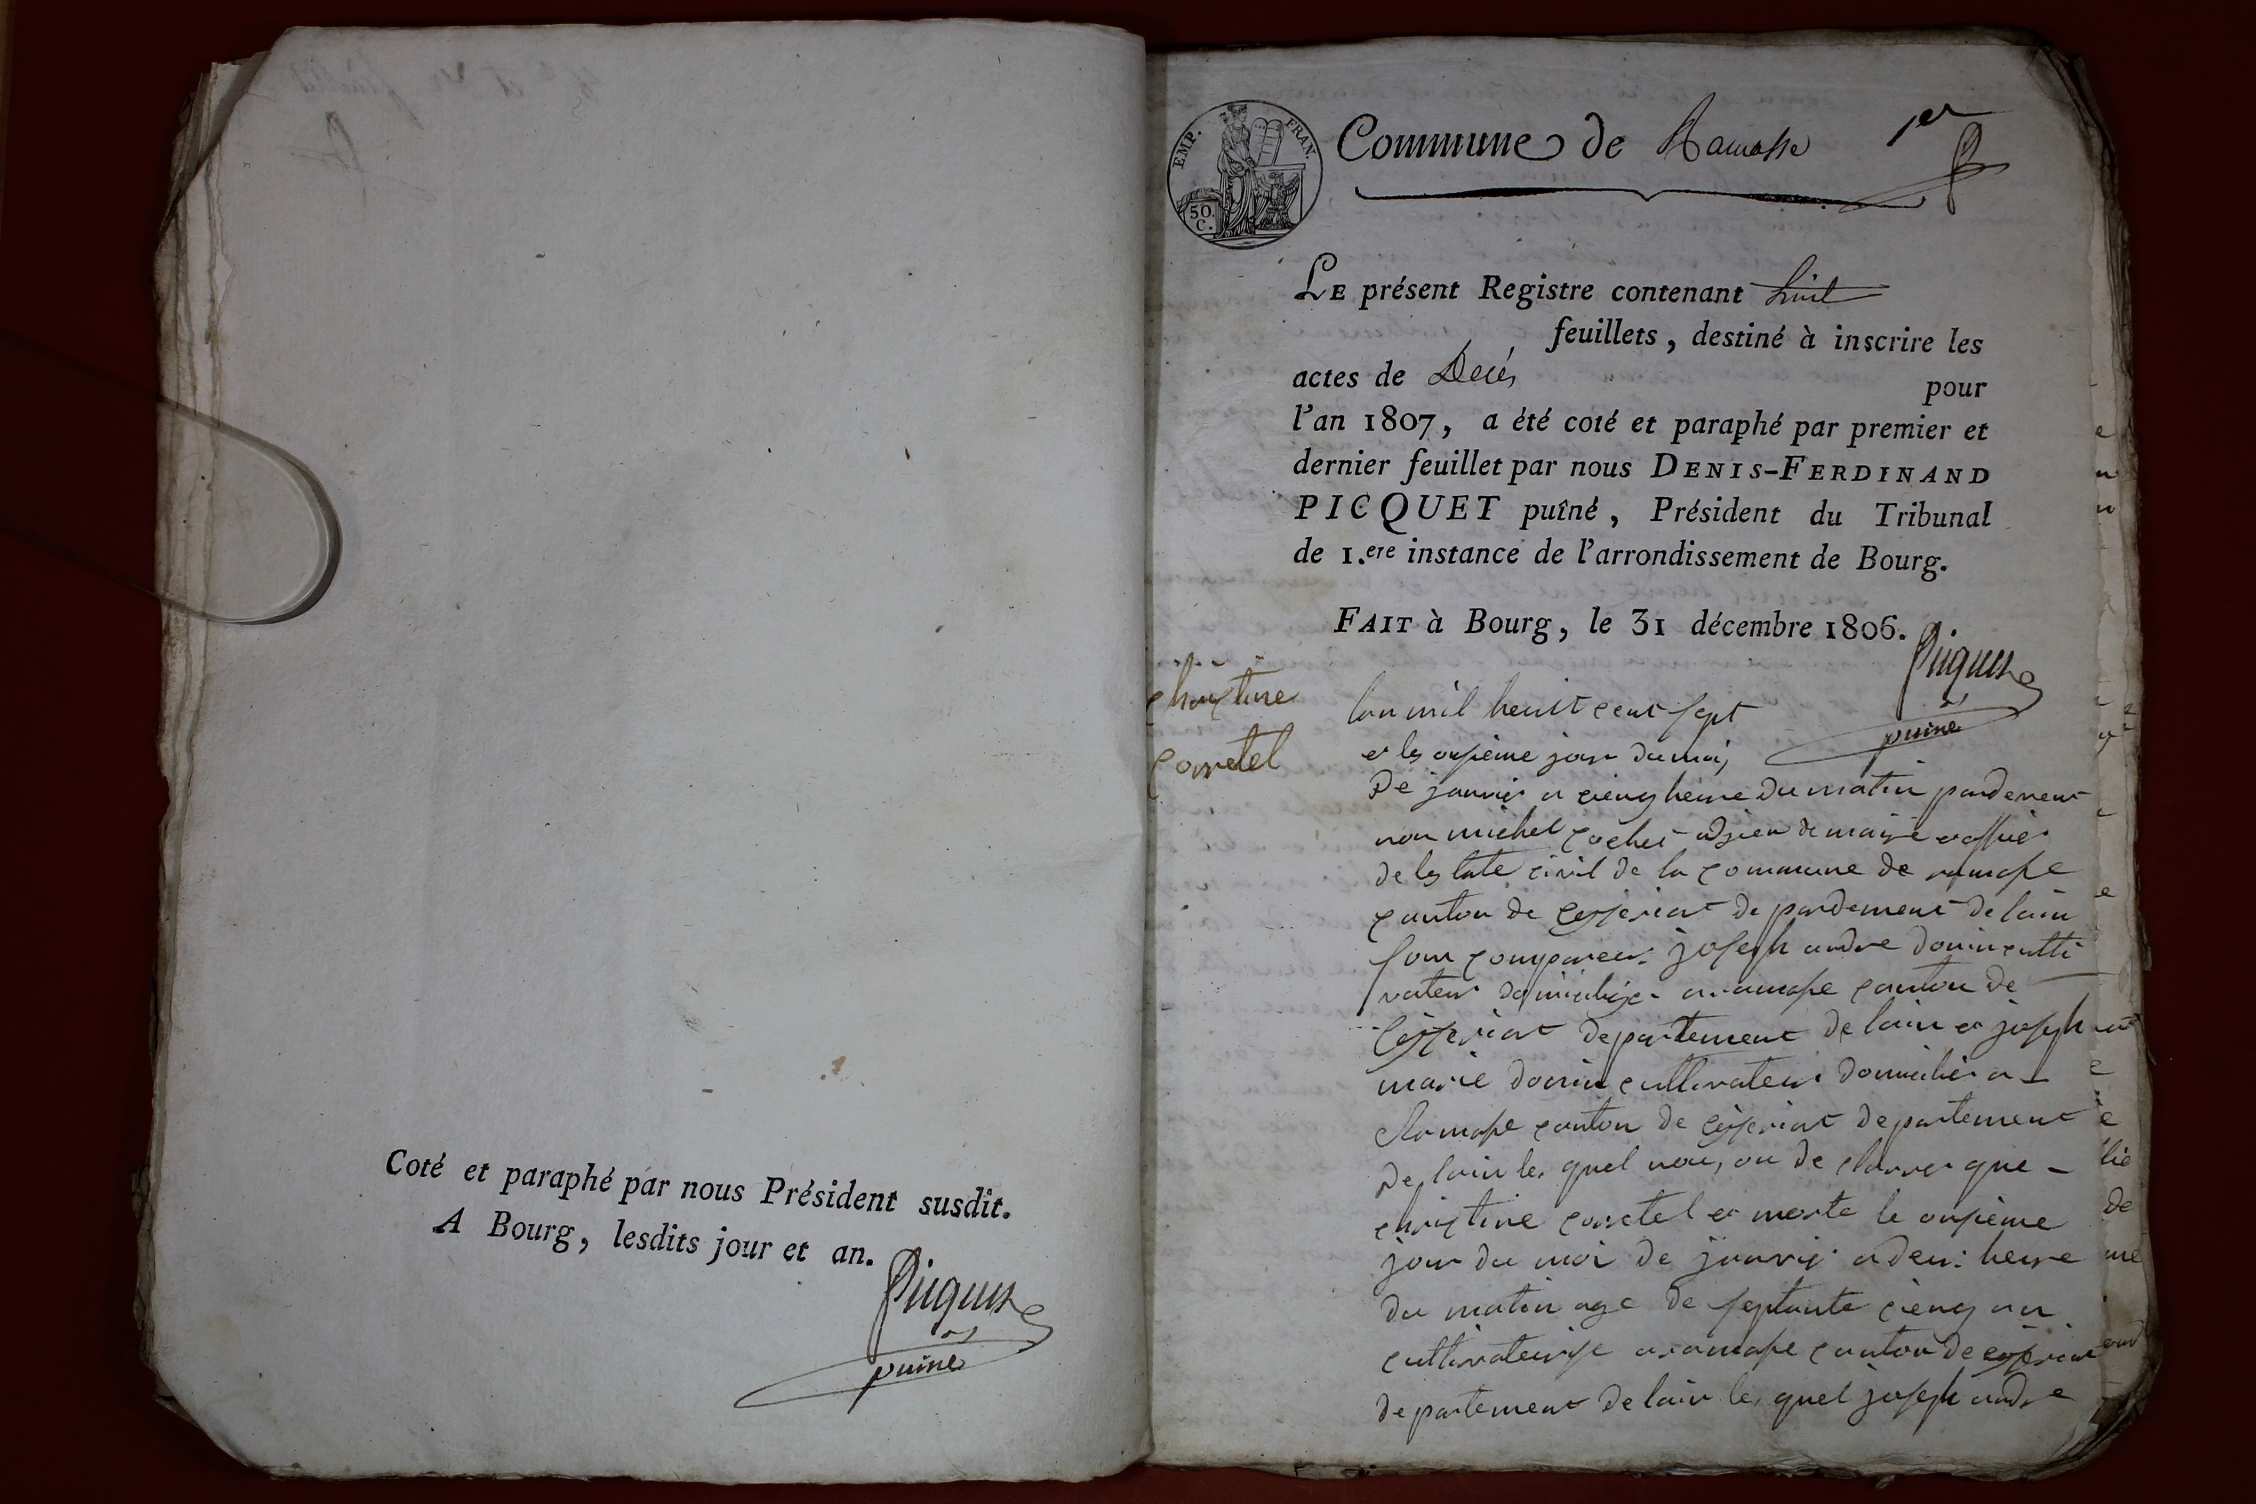 Coté et paraphé par nous Président susdit.
A Bourg, lesdits jour et an.
Picquet
puiné
EMP. FRAN.
50.
C.
Commune de Ramasse
1er
LE présent Registre contenant huit
feuillets, destiné à inscrire les
actes de Decés
pour
l'an 1807, a été coté et paraphé par premier et
dernier feuillet par nous DENIS-FERDINAND
PICQUET puîné, Président du Tribunal
de 1.ere instance de l'arrondissement de Bourg.
FAIT à Bourg, le 31 décembre 1806.
Picquet
puiné
christine
corretel
lan mil heuit cent sept
et les onsieme jour du moi
de janvier a cienq heure du matin pardevent
nou michel cochet adjien de maire et offier
de les tate civil de la commune de ramase
canton de ceyseriat de pardement de lain
son comparu joseph andre donin culti
vateur domicilie a ramase canton de
ceyseriat departement de lain et joseph
marie donin cultivateur domicilie a
Ramase canton de ceyseriat departement
de lain les quel nou on de clarer que
christine corretel et morte le onsieme
jour du moi de janvie a deu heure
du matin age de septante cienq an
cultivateurise a ramase canton de ceyseriat
departement de lain les quel joseph andre